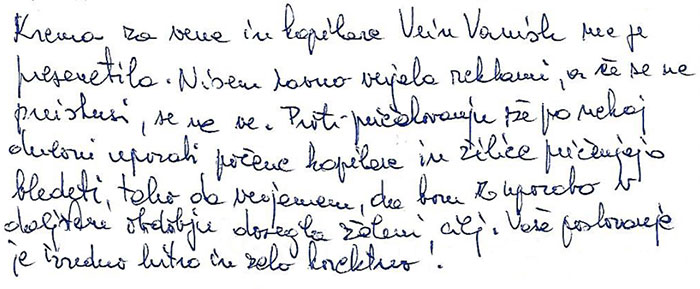 Krema za vene in kapilare Vein Vanish me je
presenetila. Nisem ravno verjela reklami, a če se ne
preizkusi, se ne ve. Proti pričakovanju že po nekaj
dnevni uporabi počene kapilare in žilice pričenjajo
bledeti, tako da verjamem, da bom z uporabo v
daljšem obdobju dosegla želeni cilj. Vaše poslovanje
je izredno hitro in zelo korektno!